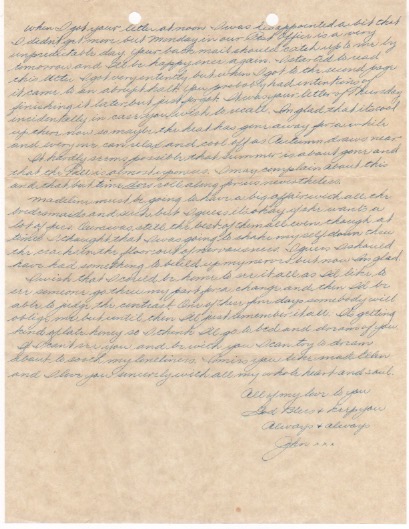 When I got your letter at noon I was disappointed a bit that
I didn't get more, but Monday in our Post Office is a very
unpredictable day. Your back mail should catch up to me by
tomorrow and I'll be happy once again. I started to read
this letter I got very intently but when I got to the second page
it came to an abrupt halt. You probably had intentions of
finishing it later but just forgot. It was your letter of Thursday
incidentally in case you wish to recall. I'm glad that it cooled
up there now so maybe the heat has gone away for a while
and everyone can relax and cool off as Autumn draws near.
It hardly seems possible that summer is about gone and
that the Fall is almost upon us. I may complain about this
and that but time does roll along for us nevertheless.
Madeline must be going to have a big affair with all the
bridesmaids and such but I guess it's okay if she wants a
lot of fuss. Ours was still the best of them all even though at
times I thought that I was going to shake myself down thru
the cracks in the floor out of nervousness. I guess I should
have had something to build up my nerve but now I'm glad
I wish that I could be home to see it all as I'd like to
see someone go thru my part for a change and then I'd be
able to judge the contrast. One of these fine days somebody will
oblige me but until then I'll just remember it all. I'm getting
kind of late honey so I think I'll go to bed and dream of you.
If I can't see you and be with you I can try to dream
about to soothe my loneliness. I miss you to be made clear
and I love you sincerely with all my whole heart and soul.
All of my love to you
God Bless & keep you
Always & always
John xxx